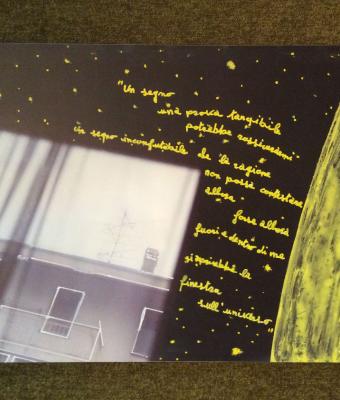 "Un segno
una prova tangibile
potrebbe rassicurarmi
un segno inconfutabile che la ragione
non possa contestare
allora
forse allora
fuori e dentro di me
si aprirebbe la
finestra
sull'universo"